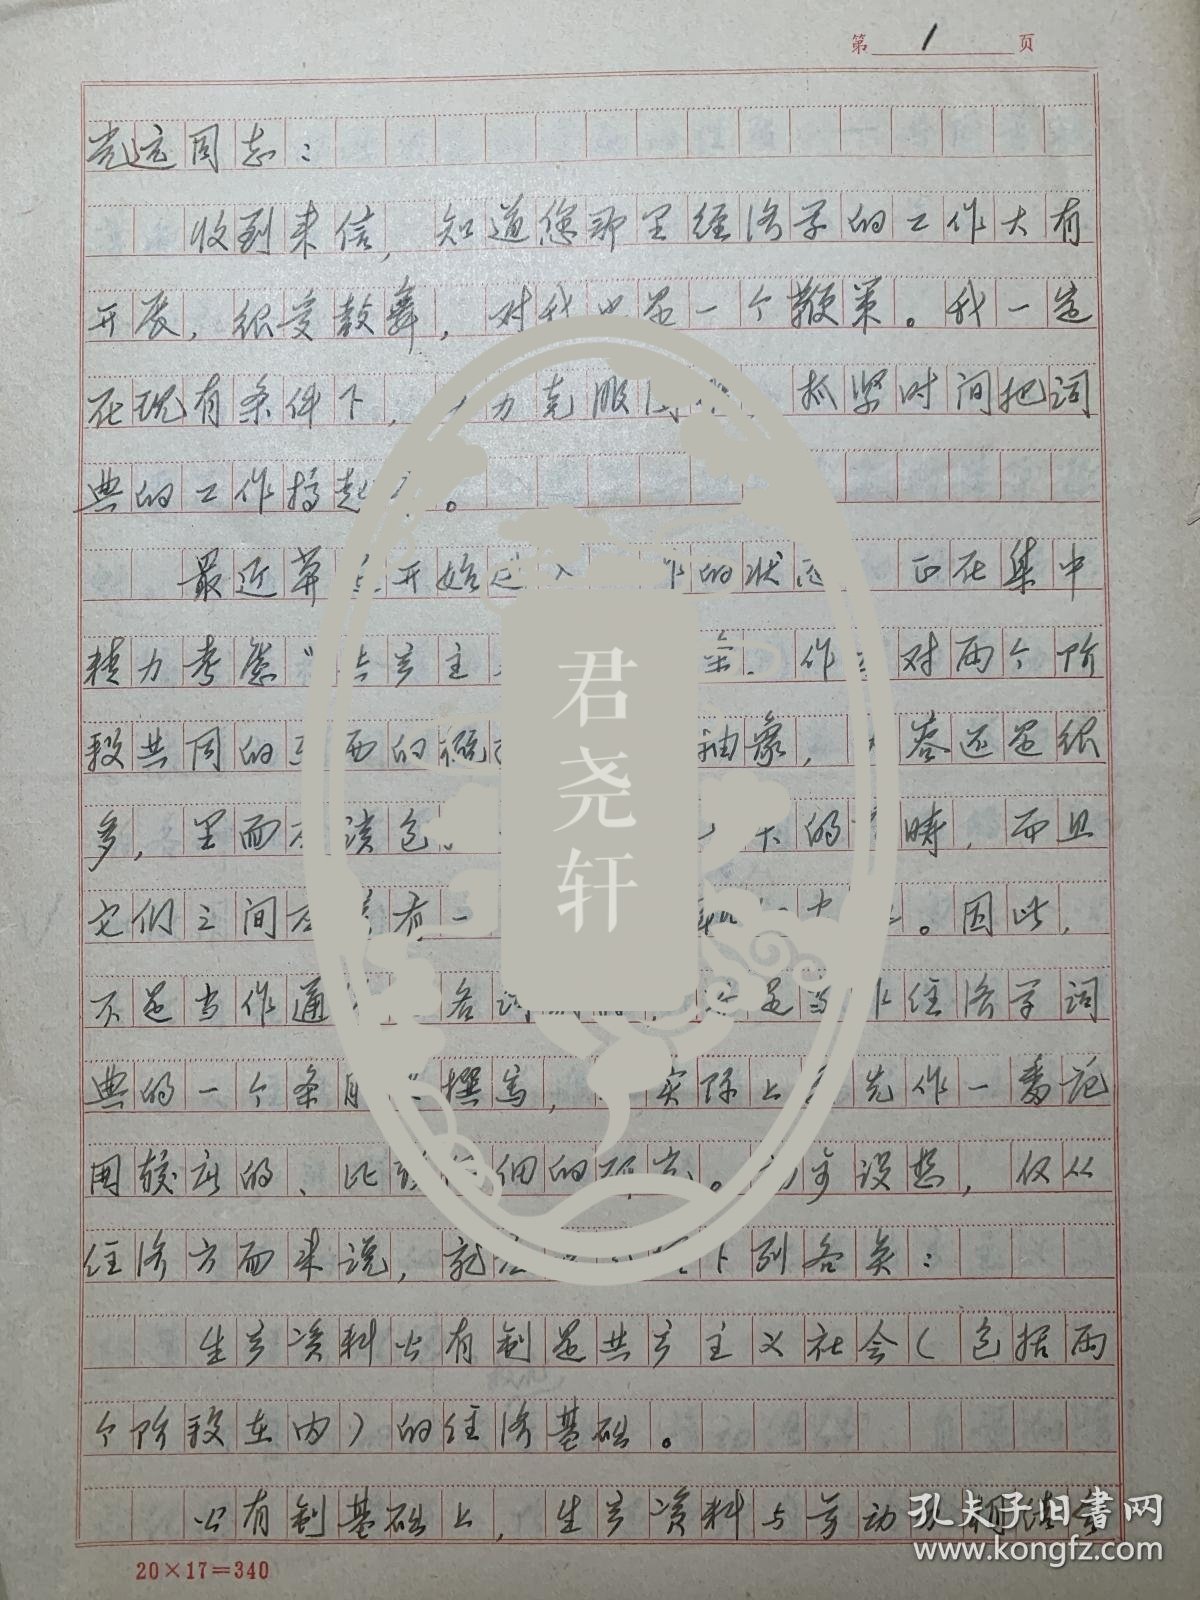 第 1 页
同志：
收到来信，知道您那里经济学的工作大有
开展，很受鼓舞，对我也是一个鞭策。我一定
在现有条件下，力克服，抓紧时间把词
典的工作搞起。
最近开始的状，正在集中
精力考虑“共产主作对两个阶
段共同的东西的概抽象，还是很
多，里面应该包的，而且
它们之间应有一。因此，
不是当作通名词，是当作经济学词
典的一个条目撰写，实际上先作一番范
围较广的、比较细的研究。初步设想，仅从
经济方面来说，就应下列各类：
生产资料公有制是共产主义社会（包括两
个阶段在内）的经济基础。
公有制基础上，生产资料与劳动力
20×17=340
君尧轩
孔夫子旧書网
www.kongfz.com